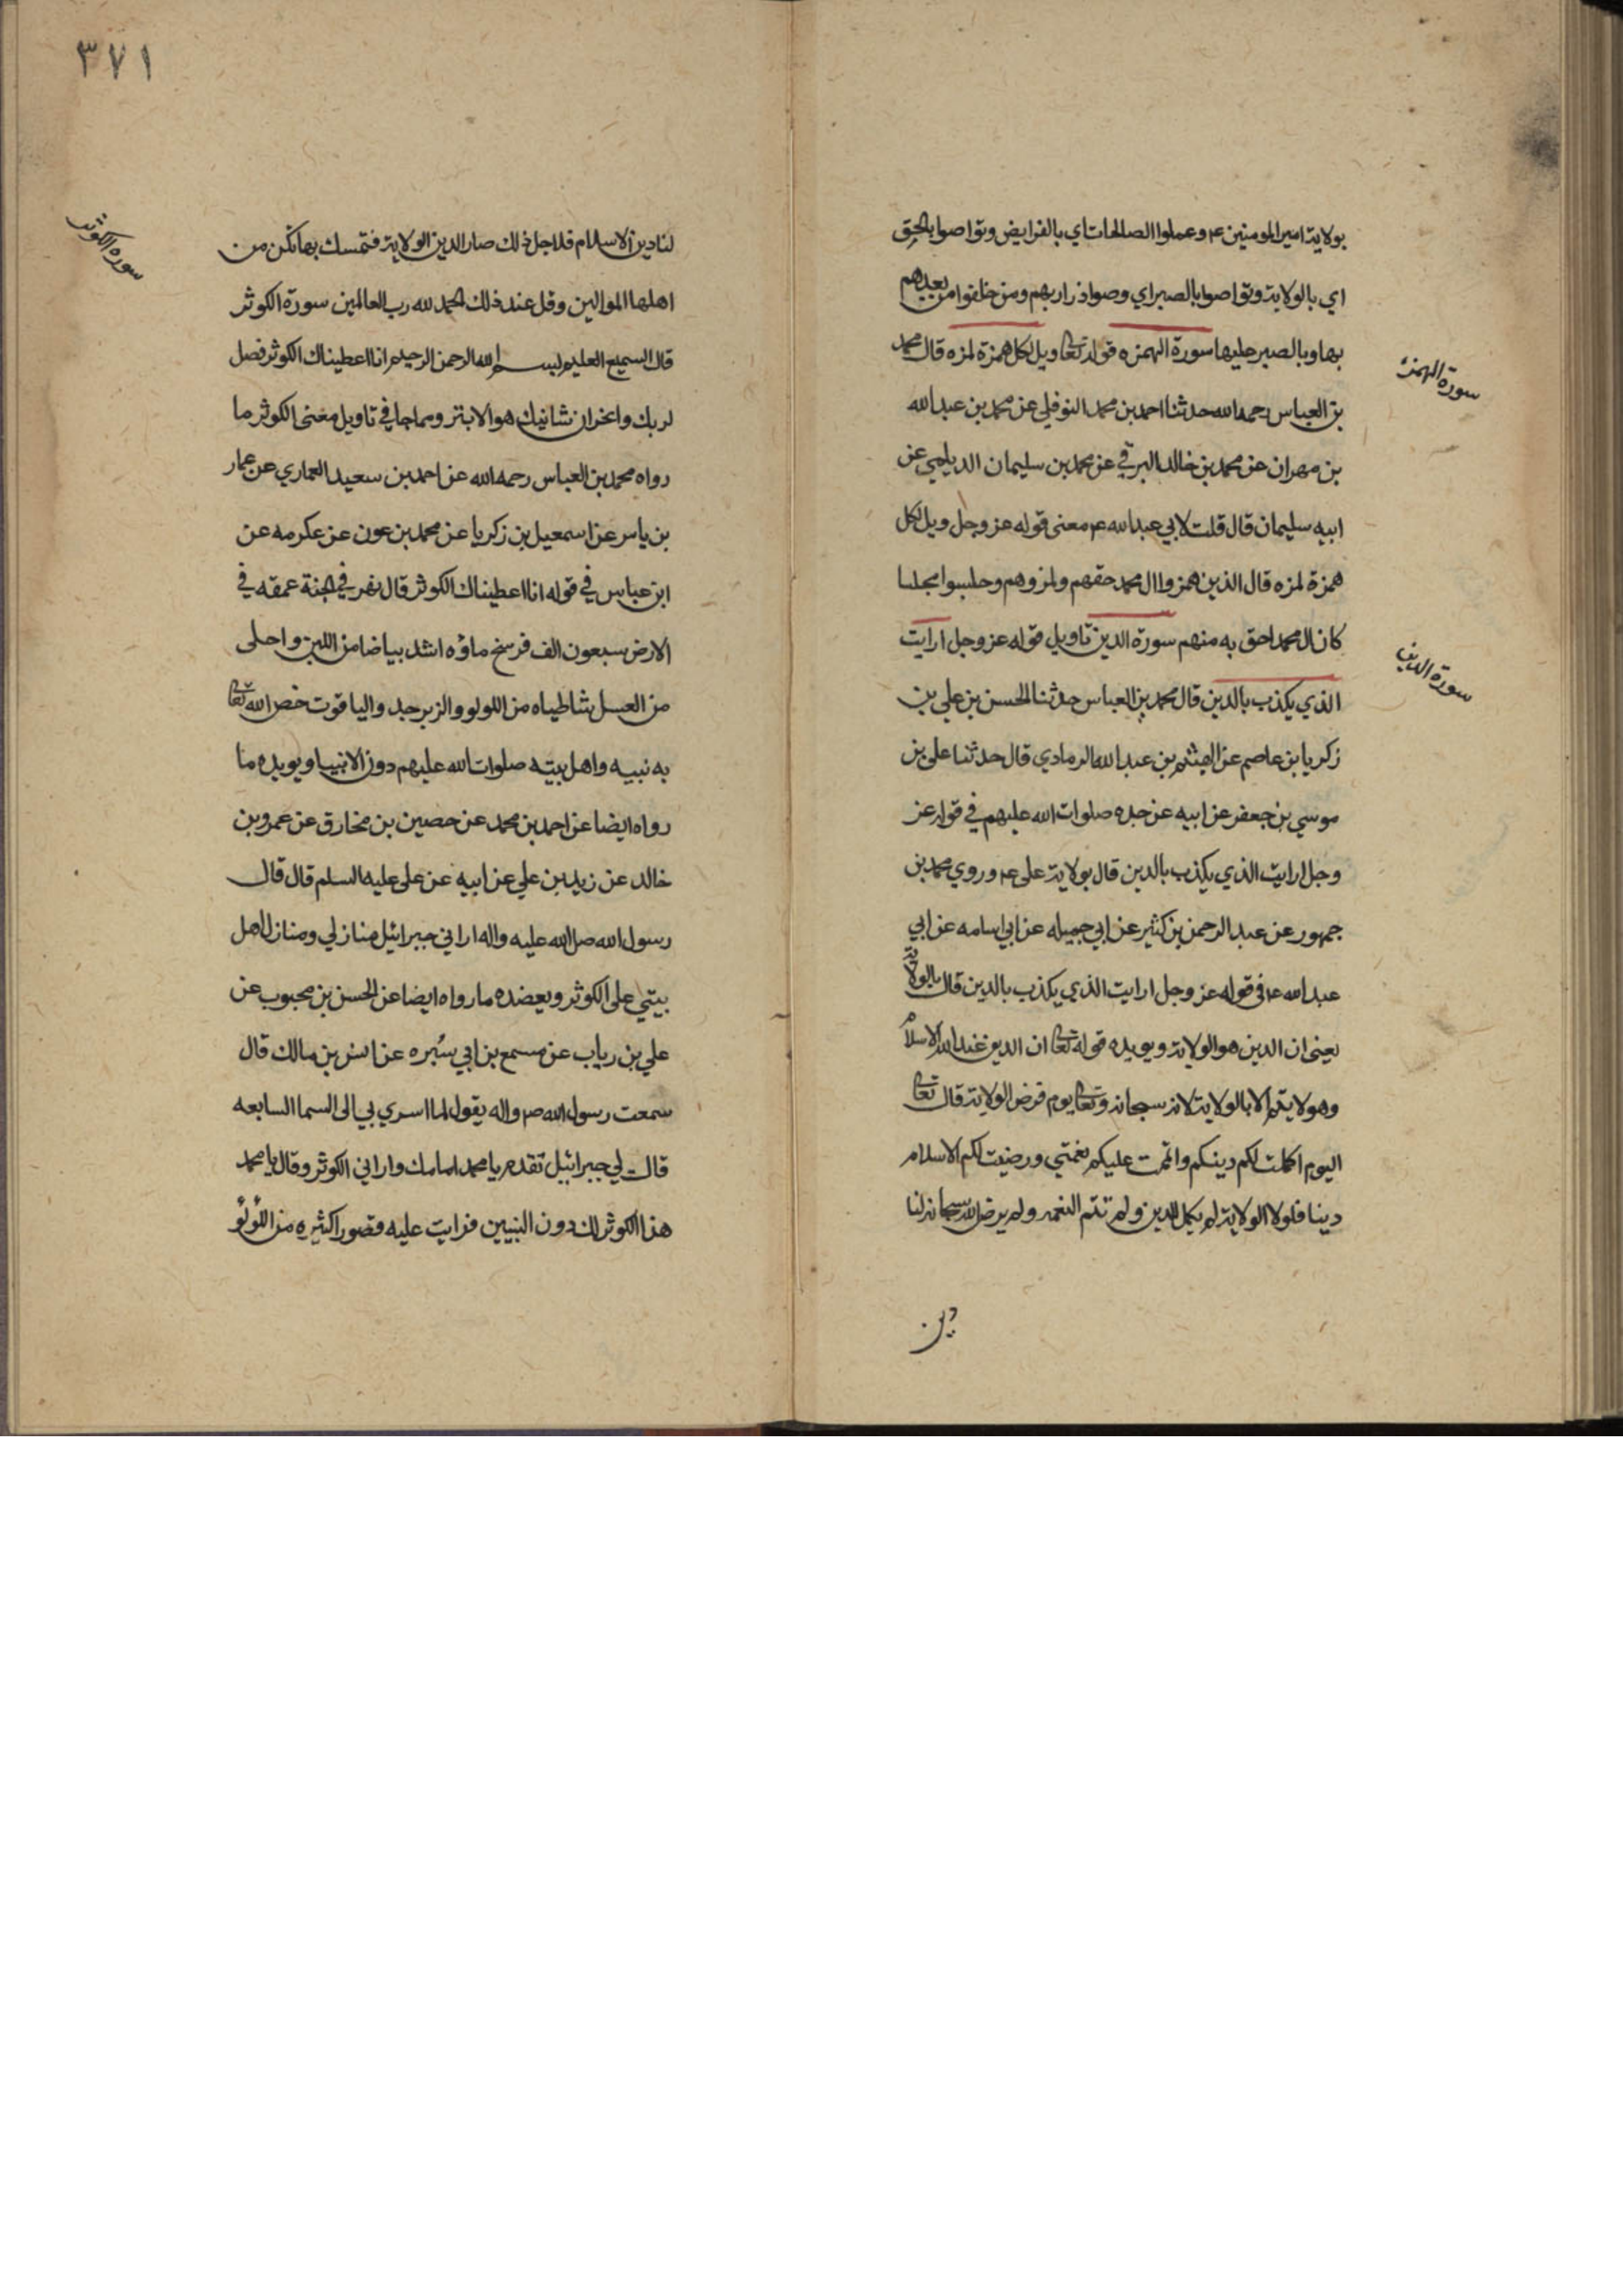 بولاية امير المومنين ع وعملوا الصالحات اي بالفرايض وتواصوا بالحق
اي بالولاية وتواصوا بالصبر اي وصوا ذراريهم ومن خلفوا من بعدهم
بها وبالصبر عليها سورة الهمزه قوله تعالى ويل لكل همزة لمزه قال محمد
سورة الهمزة
بن العباس رحمه الله حدثنا احمد بن محمد النوفلي عن محمد بن عبد الله
بن مهران عن محمد بن خالد البرقي عن محمد بن سليمان الديلمي عن
ابيه سليمان قال قلت لابي عبد الله ع معنى قوله عز وجل ويل لكل
همزة لمزه قال الذين همزوا ال محمد حقهم ولمزوهم وجلسوا مجلسا
كان ال محمد احق به منهم سورة الدين تاويل قوله عز وجل ارايت
سورة الدين
الذي يكذب بالدين قال محمد بن العباس حدثنا الحسن بن علي بن
زكريا بن عاصم عن الهيثم بن عبد الله الرمادي قال حدثنا علي بن
موسي بن جعفر عن ابيه عن جده صلوات الله عليهم في قوله عز
وجل ارايت الذي يكذب بالدين قال بولاية علي ع وروي محمد بن
جمهور عن عبد الرحمن بن كثير عن ابي جميله عن ابي اسامه عن ابي
عبد الله ع في قوله عز وجل ارايت الذي يكذب بالدين قال بالولاية
يعني ان الدين هو الولاية ويويده قوله تعالى ان الدين عند الله الاسلام
وهو لا يتم الا بالولاية لانه سبحانه وتعالى يوم فرض الولاية قال تعالى
اليوم اكملت لكم دينكم واتممت عليكم نعمتي ورضيت لكم الاسلام
دينا فلولا الولاية لم يكمل الدين ولم تتم النعمه ولم يرض الله سبحانه لنا
دين
٣٧١
لنا دين الاسلام فلاجل ذلك صار الدين الولاية فتمسك بها تكن من
اهلها الموالين وقل عند ذلك الحمد لله رب العالمين سورة الكوثر
سورة الكوثر
قال السميع العليم بسم الله الرحمن الرحيم انا اعطيناك الكوثر فصل
لربك وانحر ان شانيك هو الابتر ومما جا في تاويل معنى الكوثر ما
رواه محمد بن العباس رحمه الله عن احمد بن سعيد العماري عن عمار
بن ياسر عن اسمعيل بن زكريا عن محمد بن عون عن عكرمه عن
ابن عباس في قوله انا اعطيناك الكوثر قال نهر في الجنة عمقه في
الارض سبعون الف فرسخ ماؤه اشد بياضا من اللبن واحلى
من العسل شاطياه من اللولو والزبرجد والياقوت خص الله تعالى
به نبيه واهل بيته صلوات الله عليهم دون الانبيا ويويده ما
رواه ايضا عن احمد بن محمد عن حصين بن مخارق عن عمرو بن
خالد عن زيد بن علي عن ابيه عن علي عليه السلم قال قال
رسول الله صلى الله عليه واله اراني جبرائيل منازلي ومنازل اهل
بيتي على الكوثر ويعضده ما رواه ايضا عن الحسن بن محبوب عن
علي بن رياب عن مسمع بن ابي سبره عن انس بن مالك قال
سمعت رسول الله ص واله يقول لما اسري بي الى السما السابعه
قال لي جبرائيل تقدم يا محمد امامك واراني الكوثر وقال يا محمد
هذا الكوثر لك دون النبيين فرايت عليه قصورا كثيره من اللؤلؤ